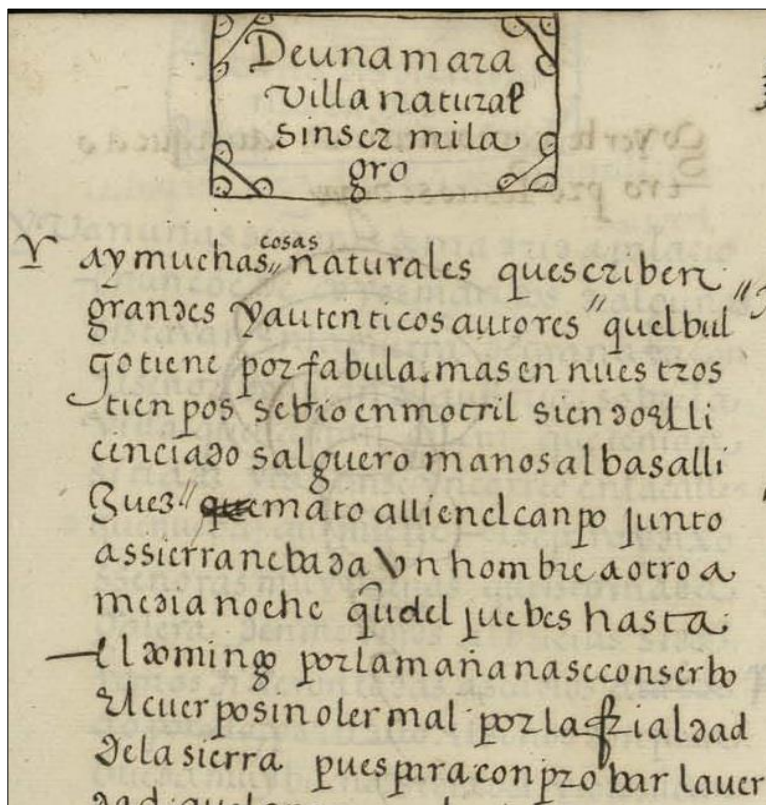 De una mara
villa natural
sin ser mila
gro
Y ay muchas cosas naturales quescriben
grandes y autenticos autores quel bul
go tiene por fabula. mas en nuestros
tienpos se bio en motril siendo el li
cenciado salguero manosalbas alli
Juez que mato alli en el canpo junto
a ssierra nebada Un hombre a otro a
media noche qudel juebes hasta
El domingo por la mañana se conserbo
El cuerpo sin oler mal por la frialdad
de la sierra pues para conprobar la ver